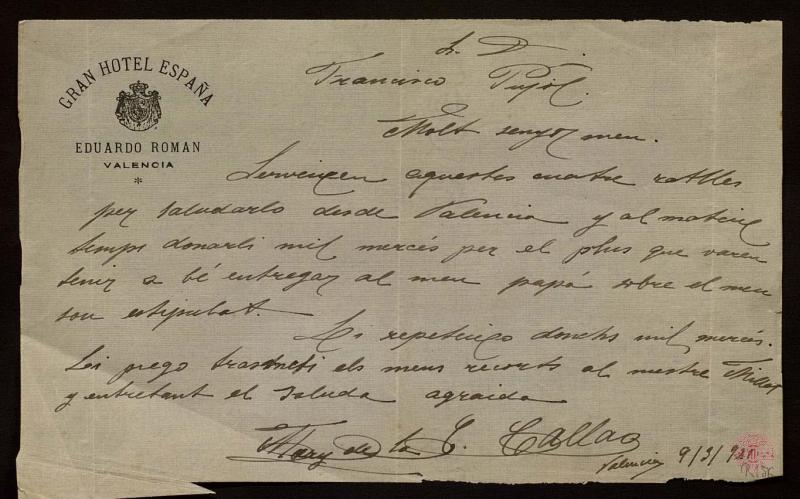 GRAN HOTEL ESPAÑA
EDUARDO ROMAN
VALENCIA
Sr. D.
Francisco Pujol.
Molt senyor meu.
Serveixen aquestes cuatre ratlles
per saludarlo desde Valencia y al mateix
temps donarli mil mercés per el plus que varen
tenir a bé entregar al meu papá sobre el meu
sou estipulat.
Li repeteixo donchs mil mercés.
Li prego trasmeti els meus recorts al mestre Millet
y entretant el saluda agraida
Mary de la C. Callao
Valencia 9/3/921